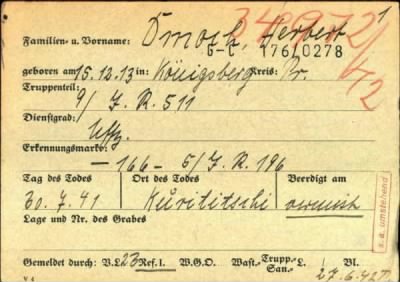 1
Familien- u. Vorname: Dmoch, Herbert
G-C 176/0278
geboren am 15.12.13 in: Königsberg Kreis: Pr.
Truppenteil:
9/ I.R. 511
Dienstgrad:
Uffz.
Erkennungsmarke:
— 166 — 5/I.R. 196
Tag des Todes Ort des Todes Beerdigt am
30.7.41 Kurititschi vermisst
Lage und Nr. des Grabes
s.a. umstehend
Gemeldet durch: V.L. 23 Ref. I. W.G.O. Wast.-Trupp.-L. Bl.
San.-
27.6.42